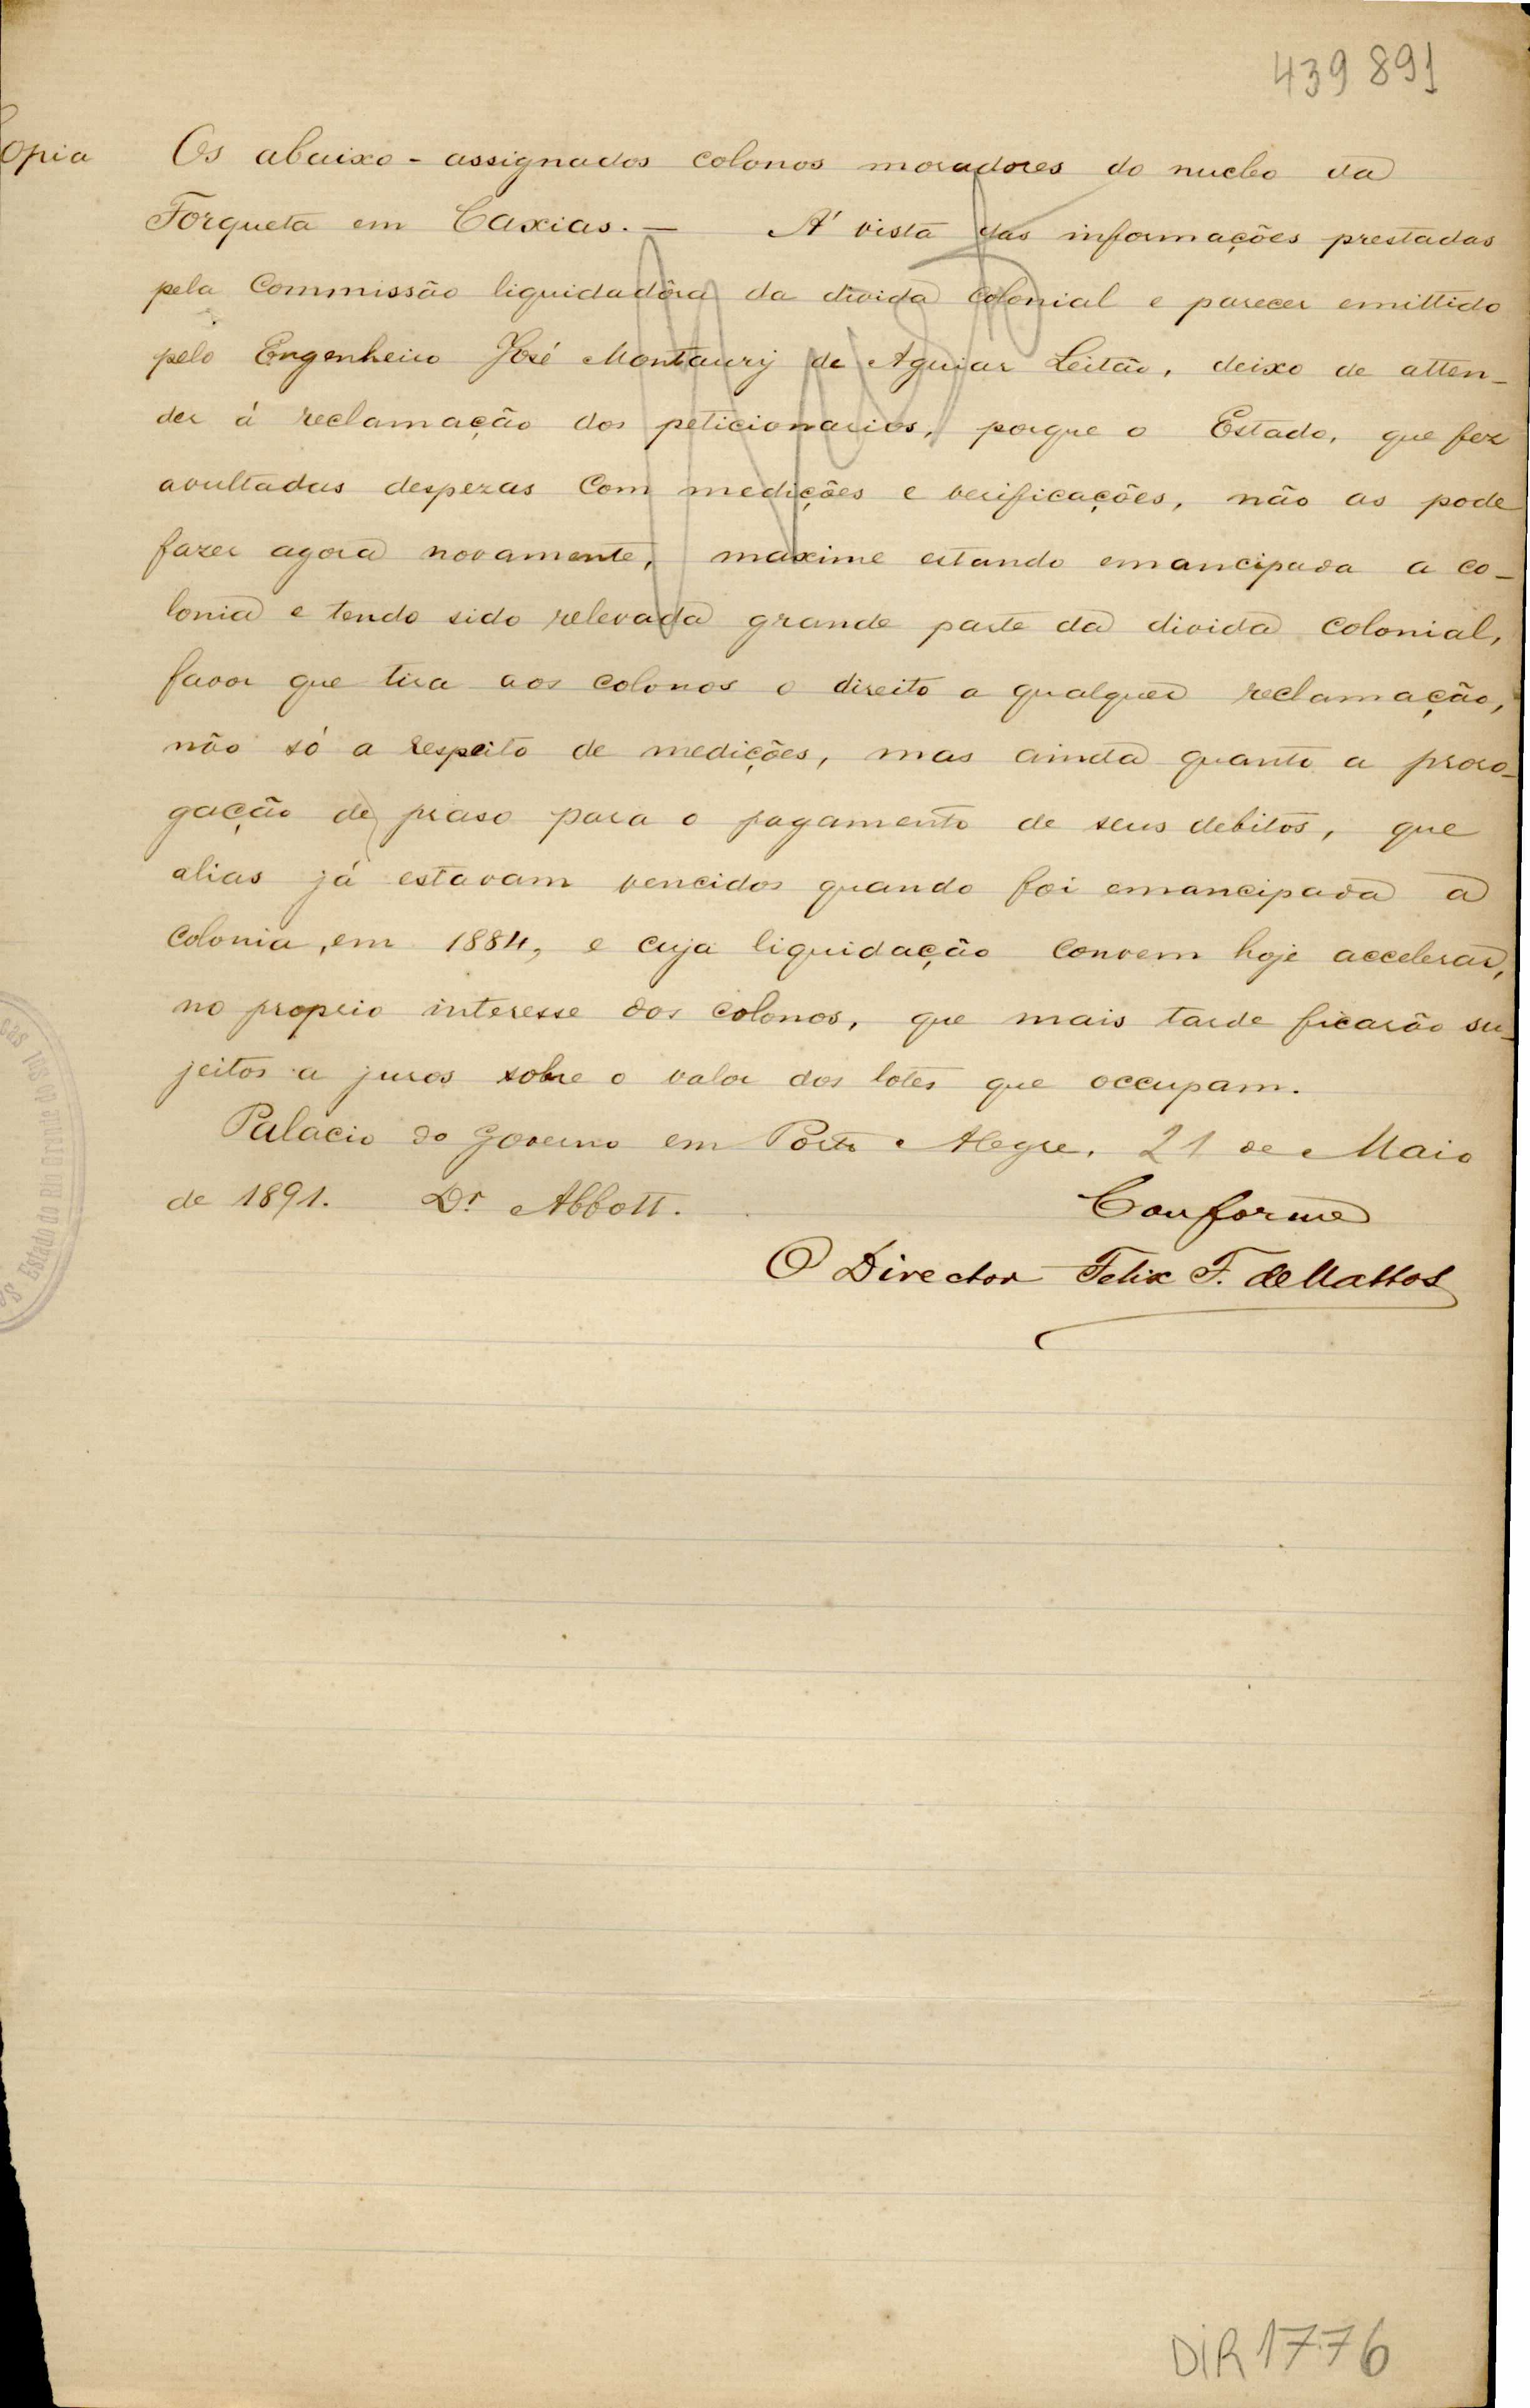 439 891
Copia Os abaixo-assignados colonos moradores do nucleo da
Forqueta em Caxias. — A' vista das informações prestadas
pela Commissão liquidadôra da divida colonial e parecer emittido
pelo Engenheiro José Montaury de Aguiar Leitão, deixo de atten-
der á reclamação dos peticionarios, porque o Estado, que fez
avultadas despezas com medições e verificações, não as pode
fazer agora novamente, maxime estando emancipada a co-
lonia e tendo sido relevada grande parte da divida colonial,
favor que tira aos colonos o direito a qualquer reclamação,
não só a respeito de medições, mas ainda quanto a proro-
gação de praso para o pagamento de seus debitos, que
alias já estavam vencidos quando foi emancipada a
colonia, em 1884, e cuja liquidação convem hoje accelerar,
no proprio interesse dos colonos, que mais tarde ficarão su-
jeitos a juros sobre o valor dos lotes que occupam.
Palacio do Governo em Porto Alegre, 21 de Maio
de 1891. Dr Abbott. Conforme
O Director Felix F. de Mattos
Estado do Rio Grande do Sul
DIR 1776